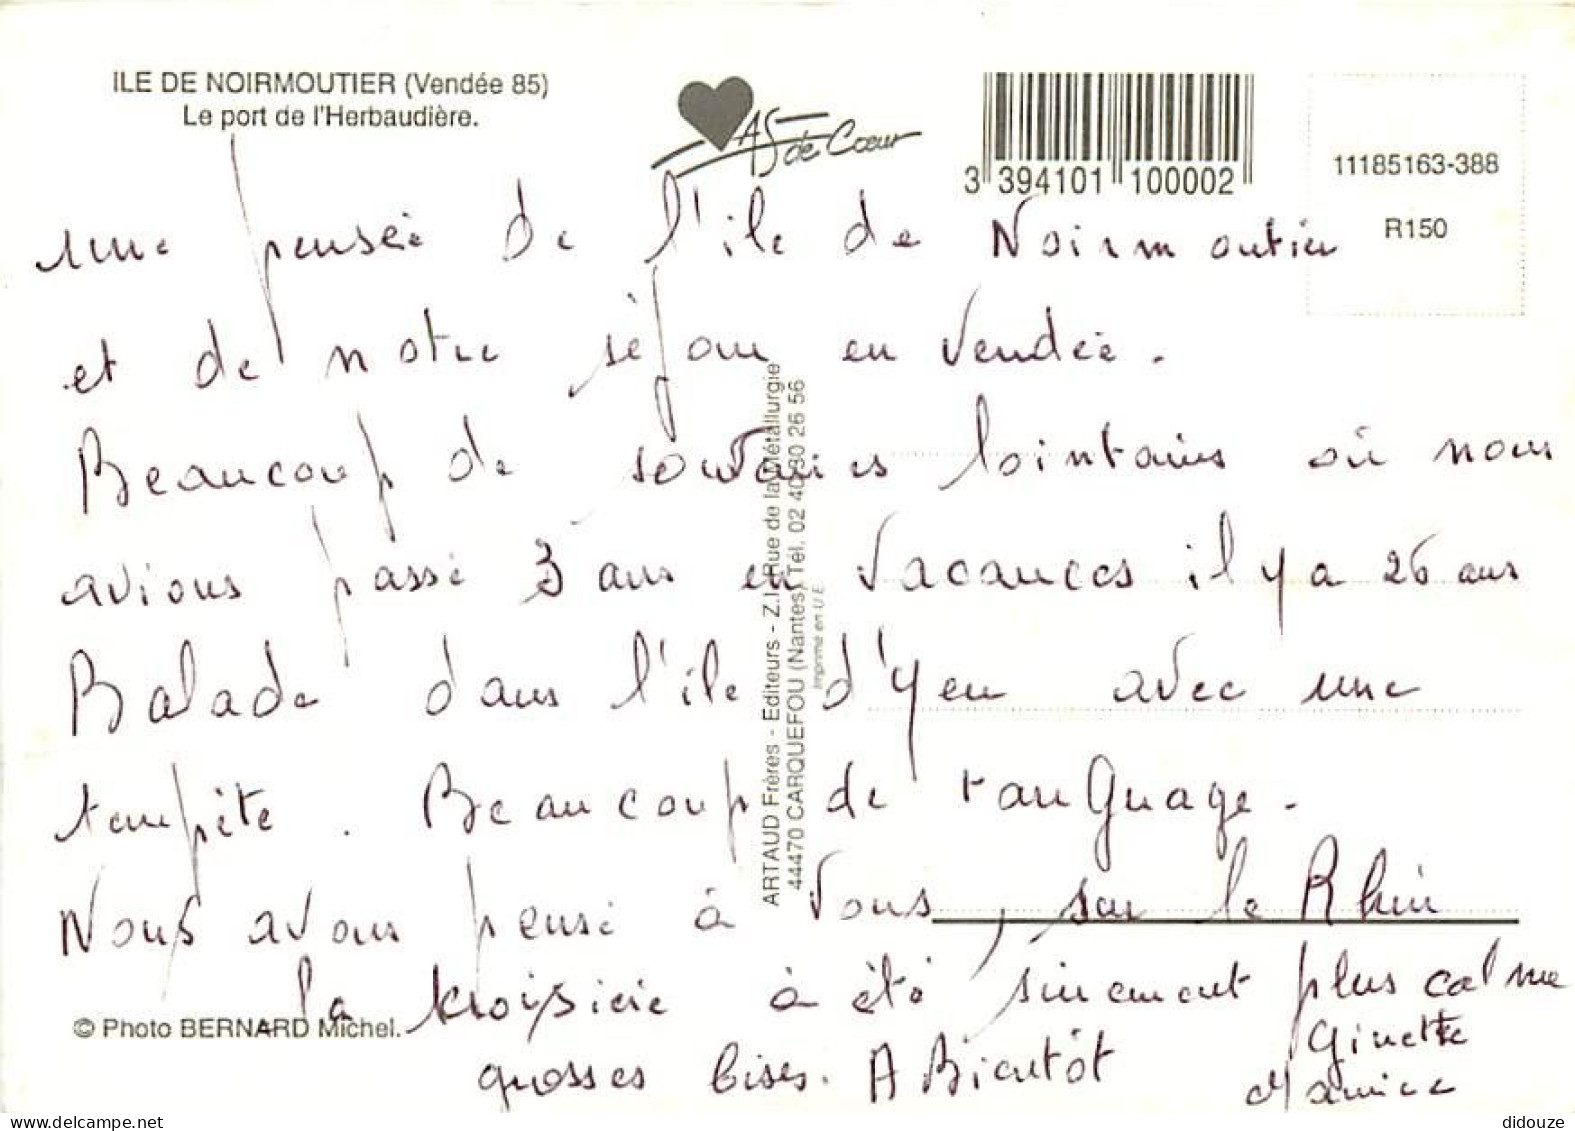 ILE DE NOIRMOUTIER (Vendée 85)
Le port de l'Herbaudière.
AS de Cœur
3 394101 100002
11185163-388
R150
une pensée de l'ile de Noirmoutier
et de notre séjour en Vendée.
Beaucoup de souvenirs lointains où nous
avions passé 3 ans en vacances il y a 26 ans
Balade dans l'ile d'Yeu avec une
tempête. Beaucoup de tanguage.
Nous avons pensé à vous, sur le Rhin
la croisière à été surement plus calme
grosses bises. A Bientôt
Ginette
Maurice
ARTAUD Frères - Editeurs - Z.I. Rue de la Métallurgie
44470 CARQUEFOU (Nantes) Tél. 02 40 30 26 56
Imprimé en U.E.
© Photo BERNARD Michel.
didouze